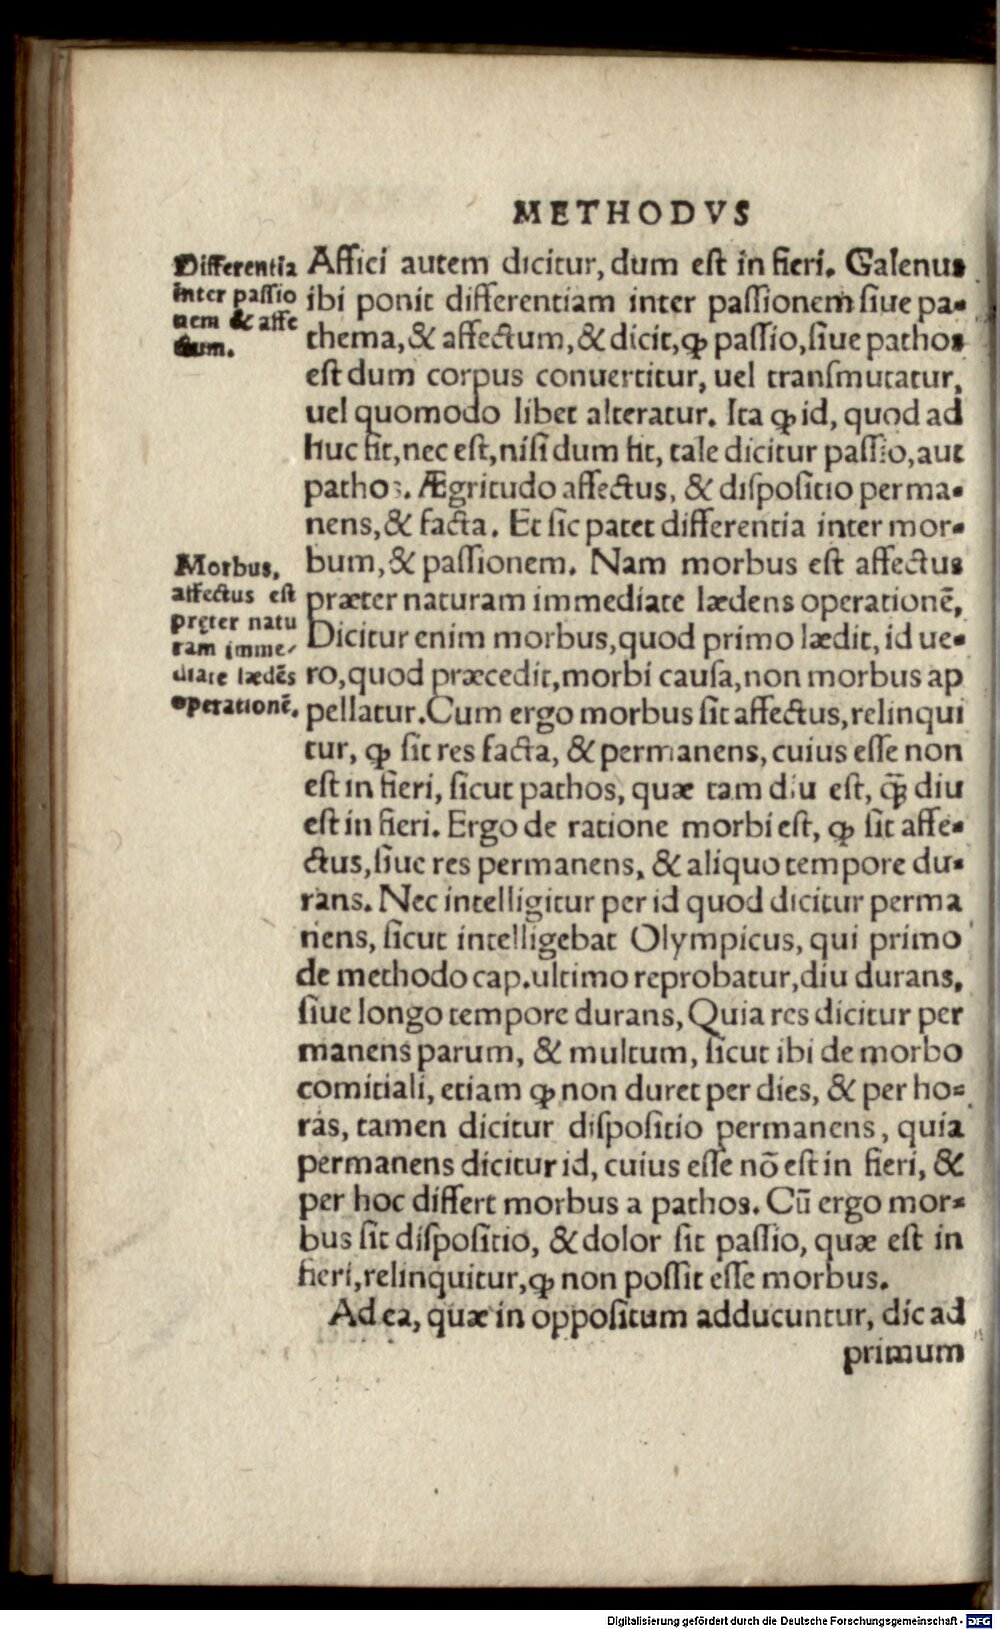 METHODVS
Differentia
inter passio
nem & affe
ctum.
Affici autem dicitur, dum est in fieri. Galenus
ibi ponit differentiam inter passionem siue pa-
thema, & affectum, & dicit, ꝙ passio, siue pathos
est dum corpus conuertitur, uel transmutatur,
uel quomodo libet alteratur. Ita ꝙ id, quod ad
huc fit, nec est, nisi dum fit, tale dicitur passio, aut
pathos. Ægritudo affectus, & dispositio perma-
nens, & facta. Et sic patet differentia inter mor-
Morbus,
affectus est
pręter natu
ram imme-
diate lædẽs
operationẽ.
bum, & passionem. Nam morbus est affectus
præter naturam immediate lædens operationẽ,
Dicitur enim morbus, quod primo lædit, id ue-
ro, quod præcedit, morbi causa, non morbus ap
pellatur. Cum ergo morbus sit affectus, relinqui
tur, ꝙ sit res facta, & permanens, cuius esse non
est in fieri, sicut pathos, quæ tam diu est, ꝙ̃ diu
est in fieri. Ergo de ratione morbi est, ꝙ sit affe-
ctus, siue res permanens, & aliquo tempore du-
rans. Nec intelligitur per id quod dicitur perma
nens, sicut intelligebat Olympicus, qui primo
de methodo cap. ultimo reprobatur, diu durans,
siue longo tempore durans, Quia res dicitur per
manens parum, & multum, sicut ibi de morbo
comitiali, etiam ꝙ non duret per dies, & per ho-
ras, tamen dicitur dispositio permanens, quia
permanens dicitur id, cuius esse nõ est in fieri, &
per hoc differt morbus a pathos. Cũ ergo mor-
bus sit dispositio, & dolor sit passio, quæ est in
fieri, relinquitur, ꝙ non possit esse morbus.
Ad ea, quæ in oppositum adducuntur, dic ad
primum
Digitalisierung gefördert durch die Deutsche Forschungsgemeinschaft - DFG